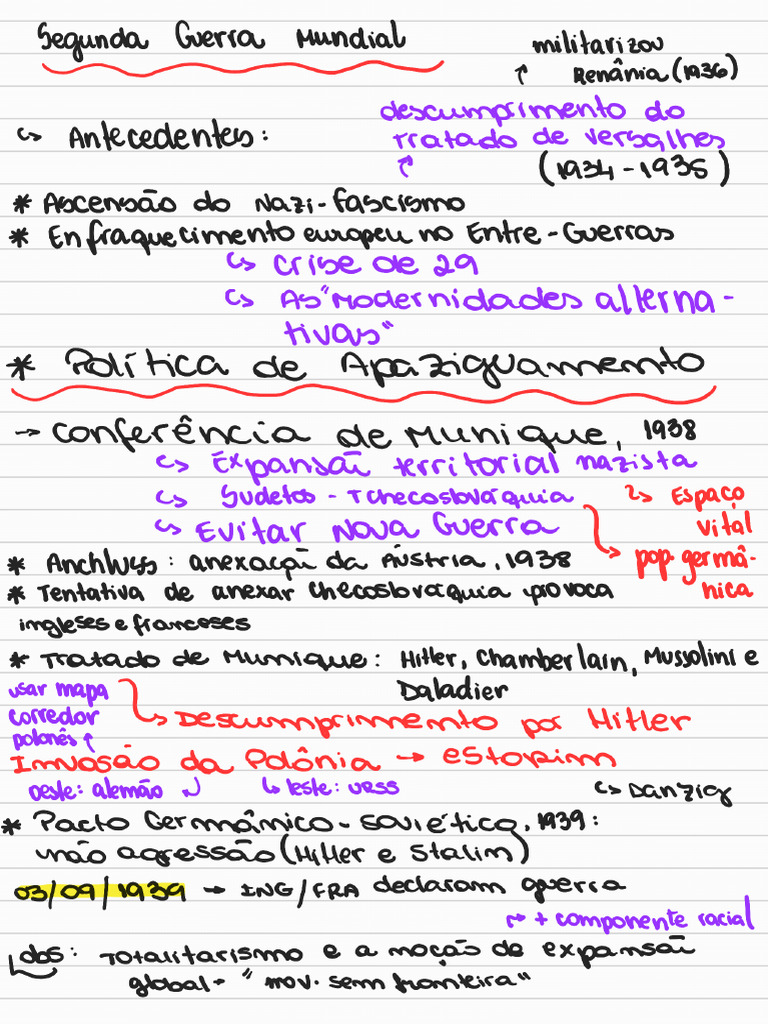 Segunda Guerra Mundial
militarizou
Renânia (1936)
descumprimento do
tratado de versalhes
(1934-1935)
↪ Antecedentes:
* Ascensão do Nazi-fascismo
* Enfraquecimento europeu no Entre-Guerras
↪ Crise de 29
↪ As "Modernidades alterna-
tivas"
* Política de Apaziguamento
→ conferência de Munique, 1938
↪ Expansão territorial nazista
↪ Sudetos - Tchecoslováquia
↪ Espaço
vital
↪ Evitar Nova Guerra
pop. germâ-
nica
* Anchluss: anexação da Áustria, 1938
* Tentativa de anexar Checoslováquia provoca
ingleses e franceses
* Tratado de Munique: Hitler, Chamberlain, Mussolini e
Daladier
usar mapa
corredor
polonês
Descumprimento por Hitler
Invasão da Polônia → estopim
oeste: alemão
↪ leste: URSS
↪ Danzig
* Pacto Germânico-soviético, 1939:
não agressão (Hitler e Stalin)
03/09/1939 → ING/FRA declaram guerra
+ componente racial
obs: Totalitarismo e a noção de expansão
global - "mov. sem fronteira"